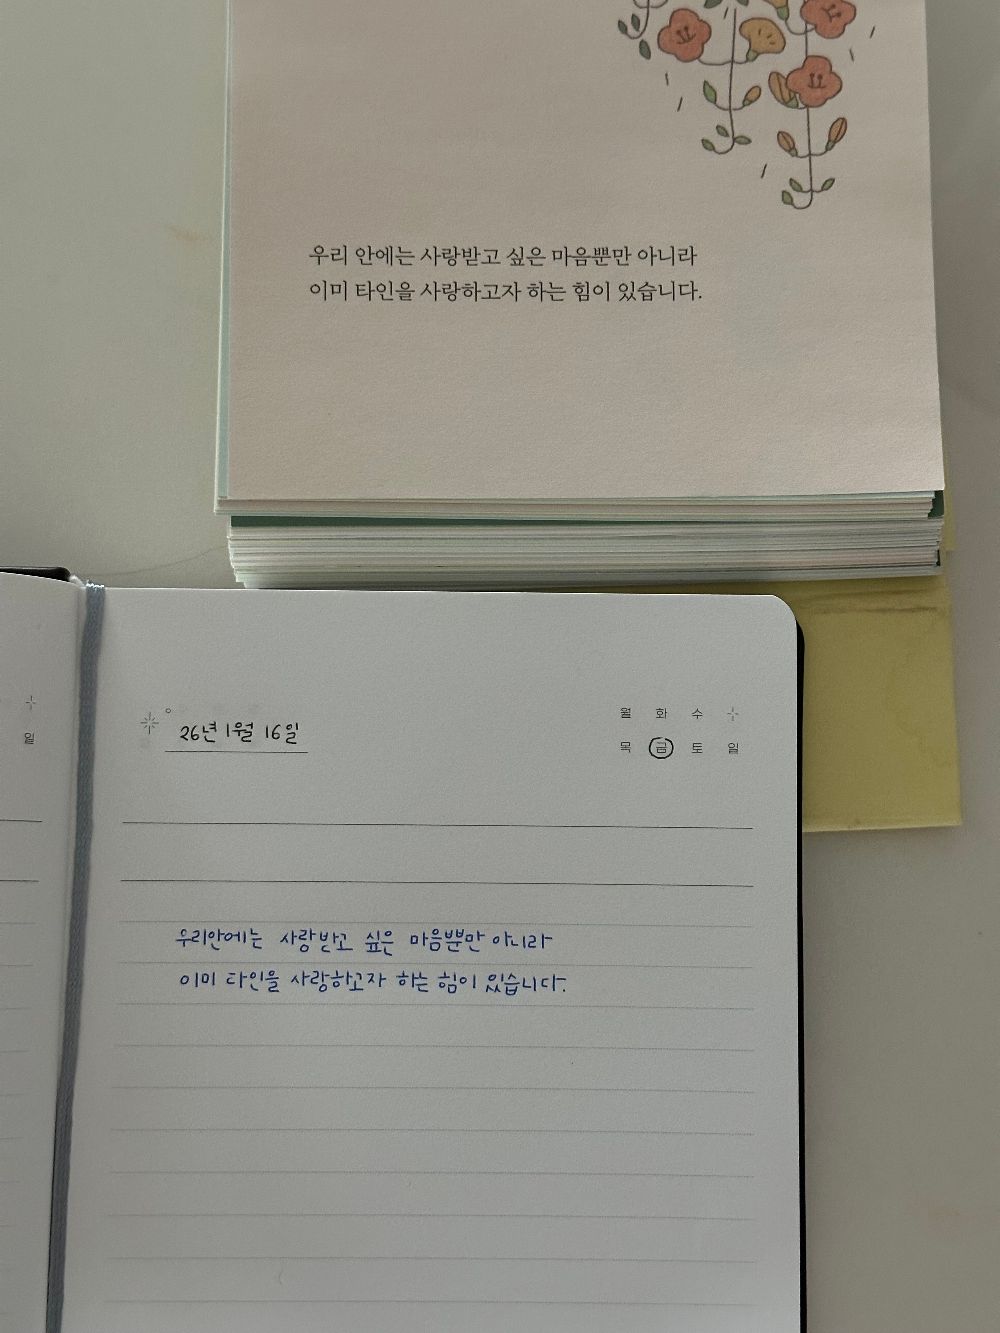 우리 안에는 사랑받고 싶은 마음뿐만 아니라
이미 타인을 사랑하고자 하는 힘이 있습니다.
일
26년 1월 16일
월 화 수
목 금 토 일
우리안에는 사랑받고 싶은 마음뿐만 아니라
이미 타인을 사랑하고자 하는 힘이 있습니다.